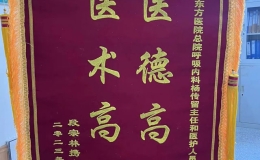 东方医院总院呼吸内科杨传留主任和医护人员
医德高
医术高
段宗林携
二零二三年